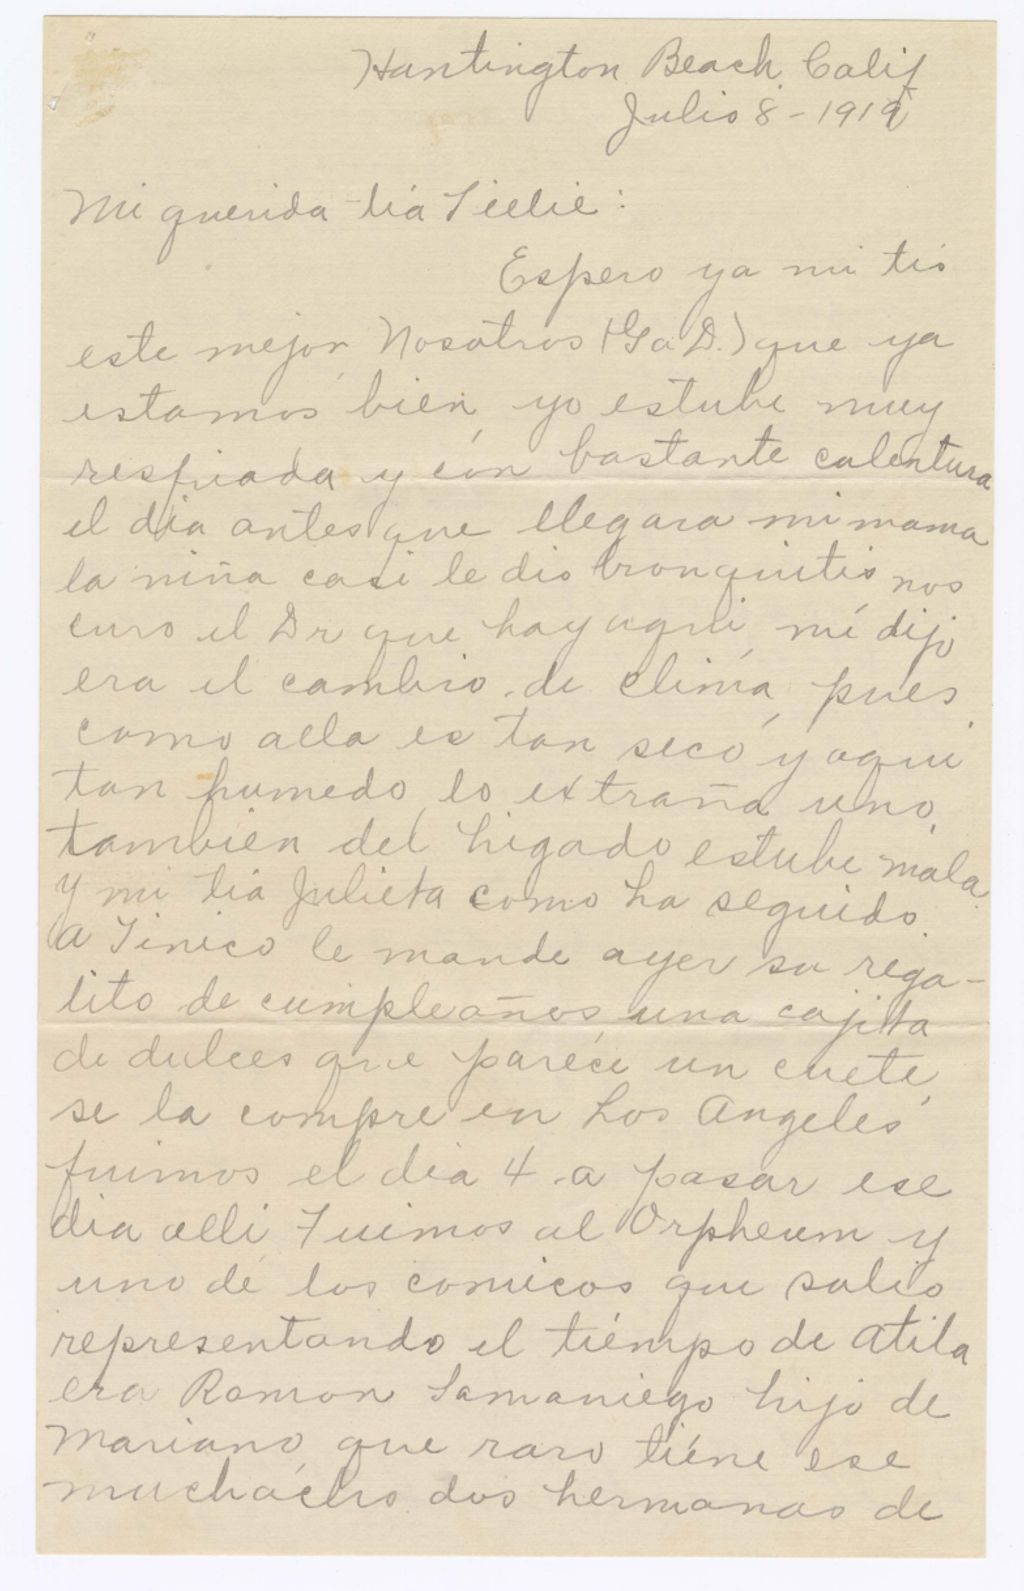 Huntington Beach, Calif
Julio 8-1919
Mi querida tia Tillie:
Espero ya mi tio
este mejor, Nosotros (G a D.) que ya
estamos bien, yo estube muy
resfriada y con bastante calentura
el dia antes que llegara mi mama
la niña casi le dio bronquitis, nos
curo el Dr que hay aqui, mé dijo
era el cambio de clima, pues
como alla es tan seco y aqui
tan humedo, lo extraña uno,
tambien del higado estube mala.
Y mi tia Julieta como ha seguido.
A Tinico le mande ayer su rega-
lito de cumpleaños, una cajita
de dulces que parece un cuete,
se la compre en Los Angeles,
fuimos el dia 4 a pasar ese
dia alli. Fuimos al Orpheum y
uno de los comicos que salio
representando el tiempo de Atila
era Ramon Samaniego hijo de
Mariano, que raro tiene ese
muchacho dos hermanas de